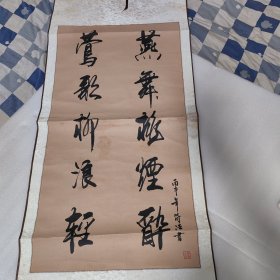 燕舞桃煙醉
鶯歌柳浪輕
丙申年
書